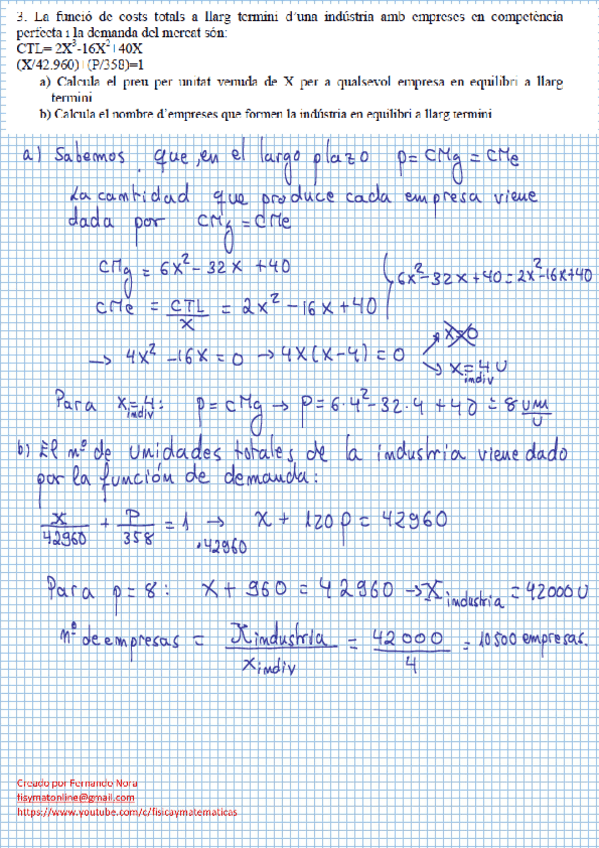 3. La funció de costs totals a llarg termini d'una indústria amb empreses en competència
perfecta i la demanda del mercat són:
CTL= 2X³-16X²+40X
(X/42.960)+(P/358)=1
a) Calcula el preu per unitat venuda de X per a qualsevol empresa en equilibri a llarg
termini
b) Calcula el nombre d'empreses que formen la indústria en equilibri a llarg termini
a) Sabemos que, en el largo plazo p = CMg = CMe
La cantidad que produce cada empresa viene
dada por CMg = CMe
CMg = 6x² - 32x + 40
6x² - 32x + 40 = 2x² - 16x + 40
CMe = CTL/X = 2x² - 16x + 40
→ 4x² - 16x = 0 → 4x(x-4) = 0
x=0
x indiv = 4 U
Para x indiv = 4: p = CMg → p = 6·4² - 32·4 + 40 = 8 UM/U
b) El nº de unidades totales de la industria viene dado
por la función de demanda:
X/42960 + P/358 = 1 → x + 120p = 42960
·42960
Para p = 8: x + 960 = 42960 → X industria = 42000 U
nº de empresas = X industria / X indiv = 42000/4 = 10500 empresas.
Creado por Fernando Nora
fisymatonline@gmail.com
https://www.youtube.com/c/fisicaymatematicas